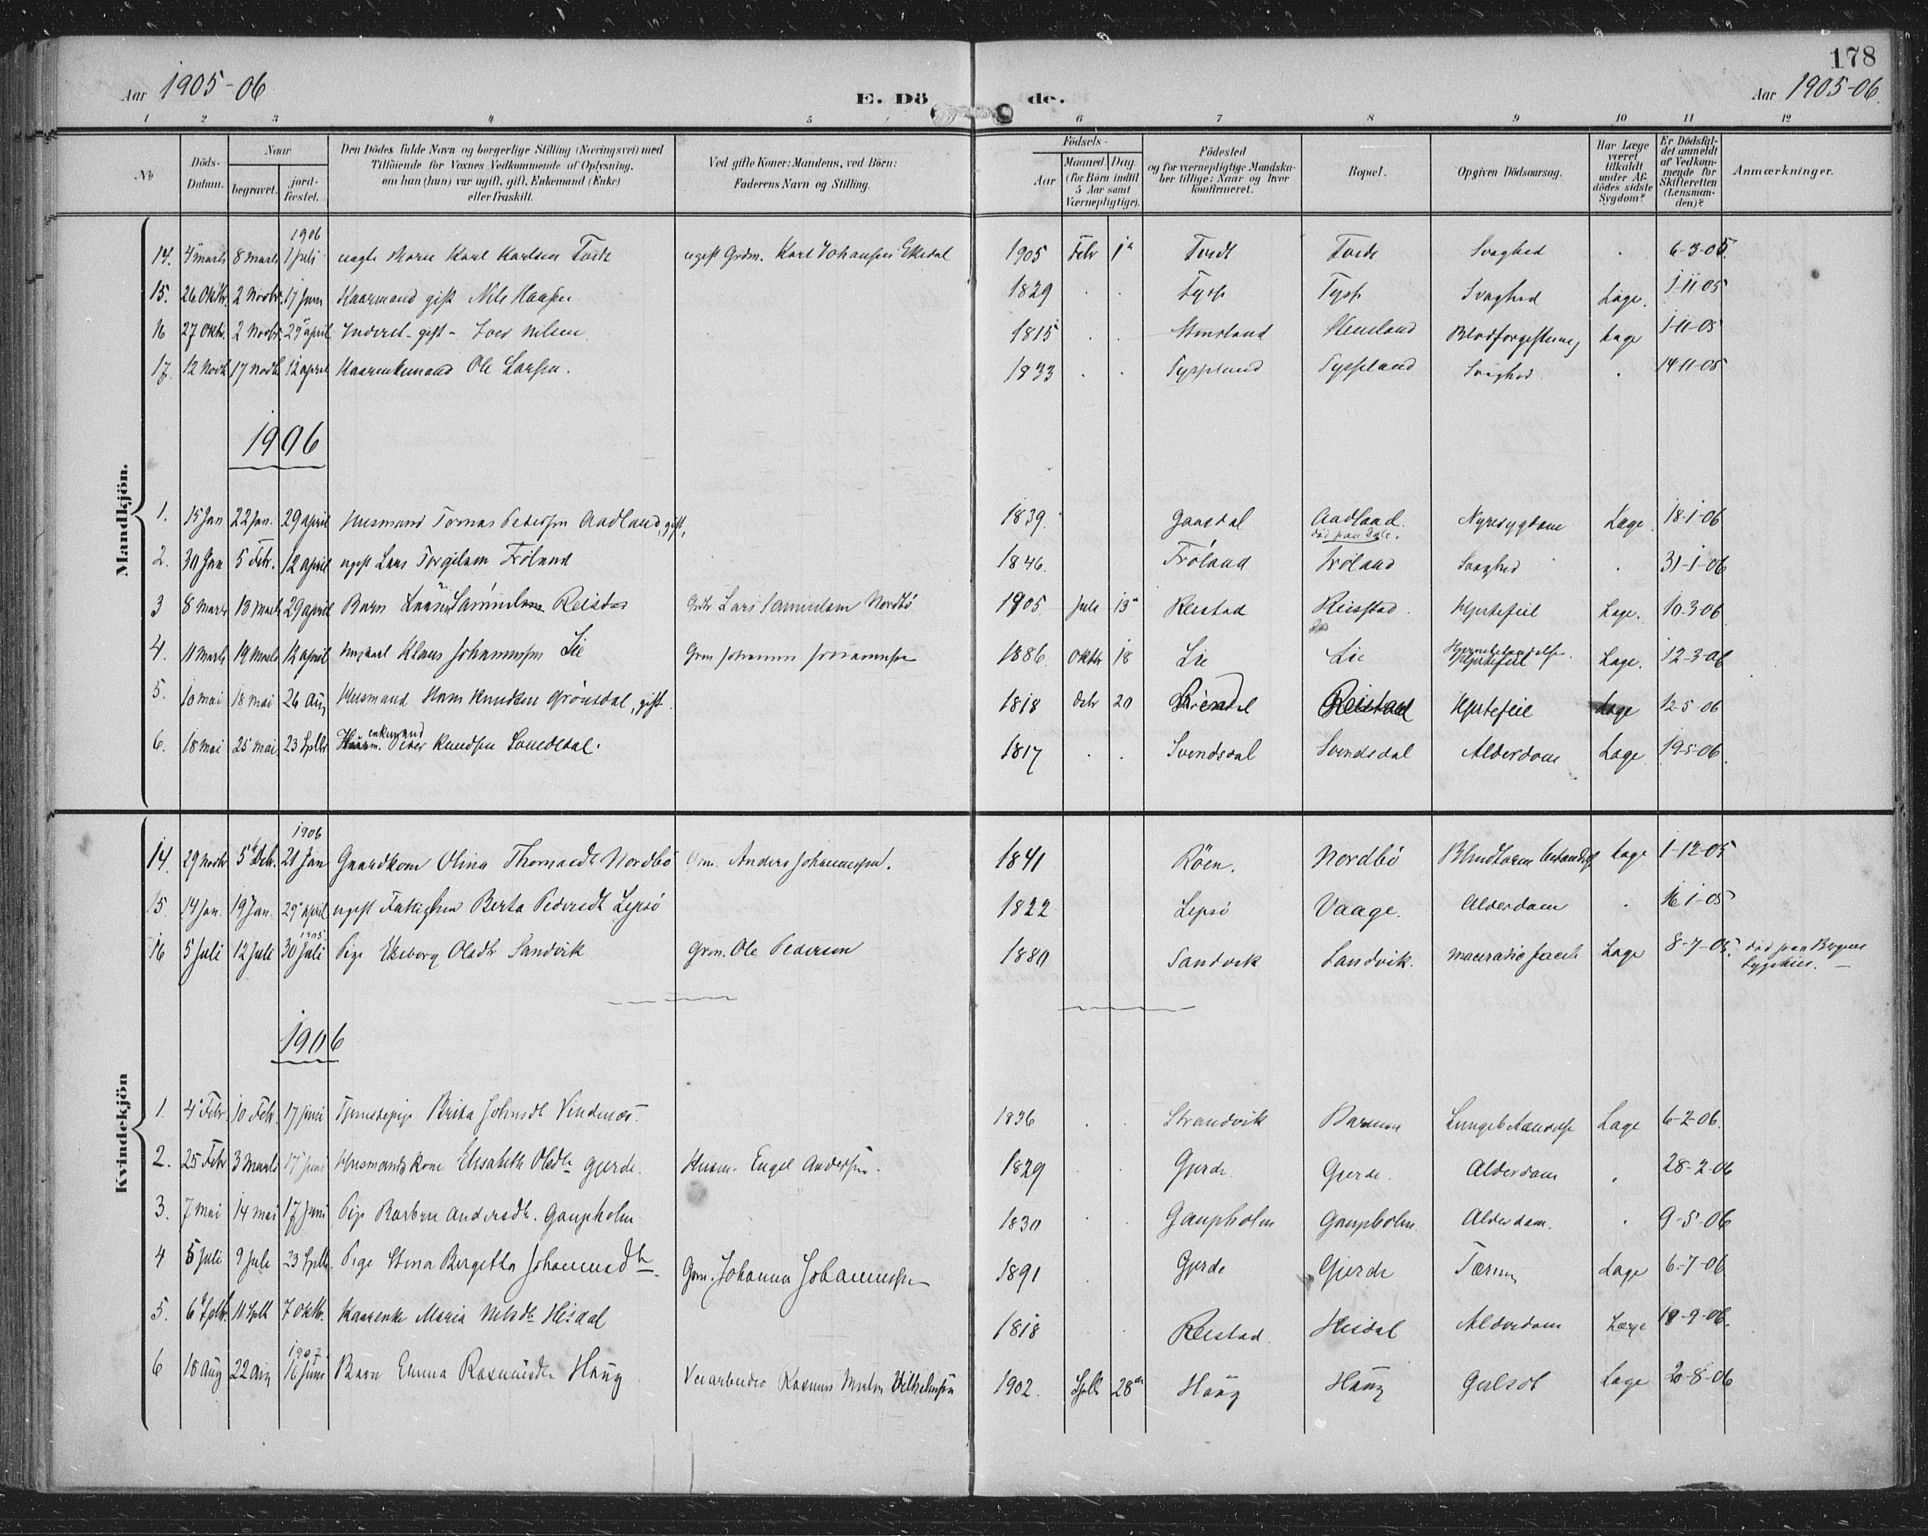 178
Aar 1905-06
E. Dö de.
Aar 1905-06.
1 2 3 4 5 6 7 8 9 10 11 12
No
Döds-Datum.
Naar
begravet.
jord-fæstet.
Den Dödes fulde Navn og borgerlige Stilling (Næringsvei) med Tilföiende for Voxnes Vedkommende af Oplysning, om han (hun) var ugift, gift, Enkemand (Enke) eller fraskilt.
Ved gifte Koner: Mandens, ved Börn: Faderens Navn og Stilling.
Födsels-
Aar
Maaned Dag (for Börn indtil 5 Aar samt Værnepligtige).
Födested og for værnepligtige Mandskaber tillige: Naar og hvor konfirmeret.
Bopæl.
Opgiven Dödsaarsag.
Har Læge været tilkaldt under Afdödes sidste Sygdom?
Er Dödsfaldet anmeldt af Vedkommende for Skifteretten (Lensmanden)?
Anmærkninger.
Mandkjön.
1906
14. 4 marts 8 marts 1 juli Karl Karlsen Tvedt ugift Grdm. Karl Johansen Ekedal 1905 Febr 1 Tvedt Tvedt Svaghed . 6-3-05
15. 26 Oktbr. 2 Novbr. 17 Juni Kaarmand gift Nils Haasen 1829 . . Tyss Tyss Svaghed Læge. 1-11-05
16 27 Oktr. 2 Novbr. 29 april Inderst - gift - Iver Nilsen 1815 . . Stensland Stensland Blodforgiftning Læge 1-11-05
17. 12 Novb 17 Novb 12 april Kaarenkemand Ole Larsen. 1833 . . Tyssland Tyssland Svaghed . 14-11-05
1906
1. 15 Jan 22 Jan. 29 april Husmand Tomas Pedersen Aadland, gift, 1839. Gaasdal Aadland. død paa Dale. Nyresygdom Læge 18-1-06
2. 30 Jan 5 Febr. 12 april ugift Lars Torgilsen Frøland 1846. Frøland Frøland Svaghed . 31-1-06
3 8 marts 13 marts 29 april Barn Samuelsen Reistad Lars Samuelsen Nordbø 1905 Juli 13 Reistad Reistad. Hjertefeil Læge. 10-3-06
4. 11 marts 19 marts 12 april Ungkarl Klaus Johannessen Lie Grm Johannes Johannessen 1886. Oktbr 18 Lie Lie Hjertefeil Læge. 12-3-06
5. 10 mai 18 mai 26 Aug Husmand Hans Knudsen Grönsdal, gift. 1818 Debr 20 Reistad Hjertefeil Læge 12-5-06
6. 18 mai 25 mai 23 Septbr enkemand Peder Knudsen Svendsdal. 1817 . . Svendsdal Svendsdal Alderdom Læge 19-5-06.
Kvindekjön
1906
14. 29 Novbr 5 Debr. 21 Jan Gaardkone Olina Thomasdt Nordbö Grm. Anders Johannessen. 1841 Röen. Nordbö Læge 1-12-05
15. 14 Jan. 19 Jan. 29 april ugift Fattiglem Berta Pedersdt Lepsö 1822 Lepsö Vaage. Alderdom . 16-1-05
1905
16 5 Juli 12 Juli 30 Juli Pige Olsdtr Sandvik Grm. Ole Pederson 1880 Sandvik Sandvik. Læge 8-7-05. død paa Bergens Sygehus.
1906
1. 4 Febr. 10 Febr. 17 juni Tjenestepige Brita Johnsdt Vindenes. 1836 . . Strandvik Lungebetændelse Læge 6-2-06.
2. 25 Febr 3 Marts 17 Juni Husmandskone Elisabeth Olsdtr Gjerde. Husm. Engel Andersen. 1829 Gjerde. Gjerde. Alderdom . 28-2-06
3. 7 mai 14 mai 17 Juni Pige Barbru Andersdt. Gaupholm 1830 . . Gaupholm Gaupholm. Alderdom. . 9-5-06
4 5 Juli 9 Juli 23 Septb. Pige Stina Bergetta Johannesdtr. Grm. Johannes Johannessen 1891 Gjerde Gjerde Tæring Læge 6-7-06
5. 6 Septbr. 11 Septb 7 Oktb. Kaarenke Maria Nilsdtr Heisdal 1818 . . Reistad. Heisdal Alderdom Læge 18-9-06.
1907.
6 18 Aug 22 Aug 16 Juni Barn Emma Rasmusdtr Haug Veiarbeider Rasmus Vilhelmsen 1902. Septb 28 Haug Haug Gulsot Læge 20-8-06